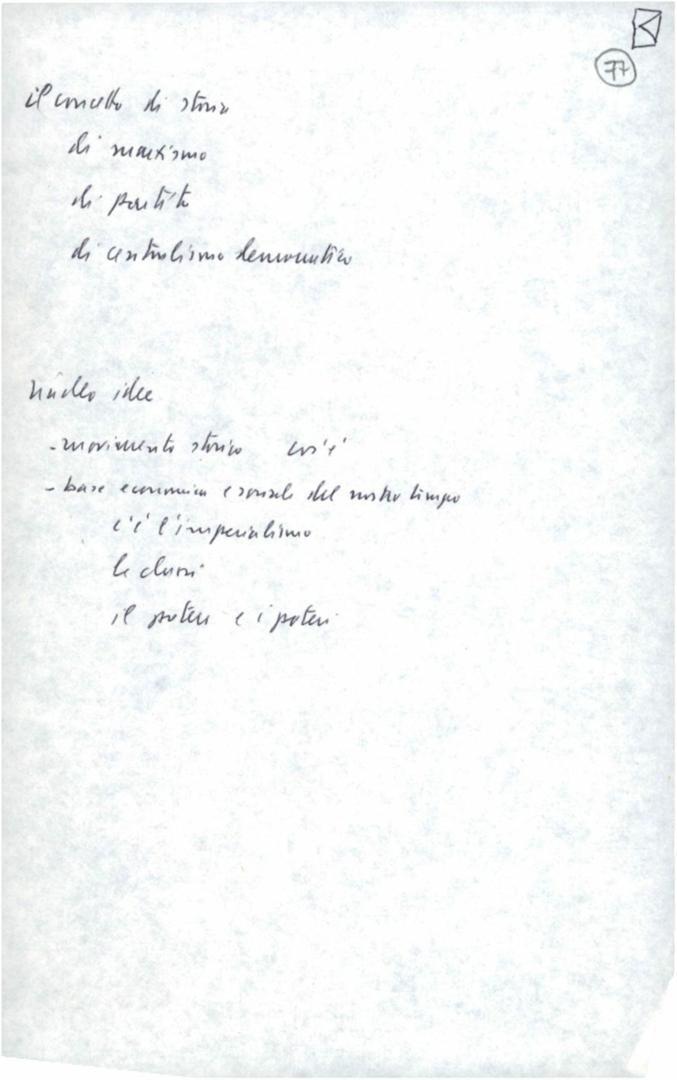 77
il concetto di storia
di marxismo
di partito
di centralismo democratico
nucleo idee
- movimento storico cos'è
- base economica e sociale del nostro tempo
c'è l'imperialismo
le classi
il potere e i poteri